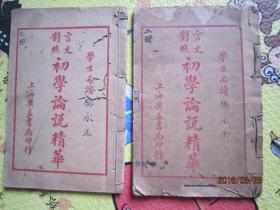 學生必讀
言文對照
初學論說精華
上海廣益書局印行
學生必讀
言文對照
初學論說精華
上海廣益書局印行
2016/09/29